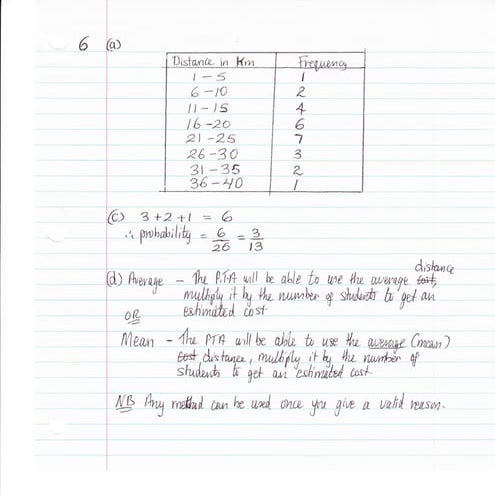 6 (a)
Distance in Km Frequency
1 - 5 1
6 - 10 2
11 - 15 4
16 - 20 6
21 - 25 7
26 - 30 3
31 - 35 2
36 - 40 1
(c) 3 + 2 + 1 = 6
∴ probability = 6/26 = 3/13
distance
(d) Average - The P.T.A will be able to use the average cost,
multiply it by the number of students to get an
OR estimated cost
Mean - The PTA will be able to use the average (mean)
cost distance, multiply it by the number of
students to get an estimated cost.
NB Any method can be used once you give a valid reason.